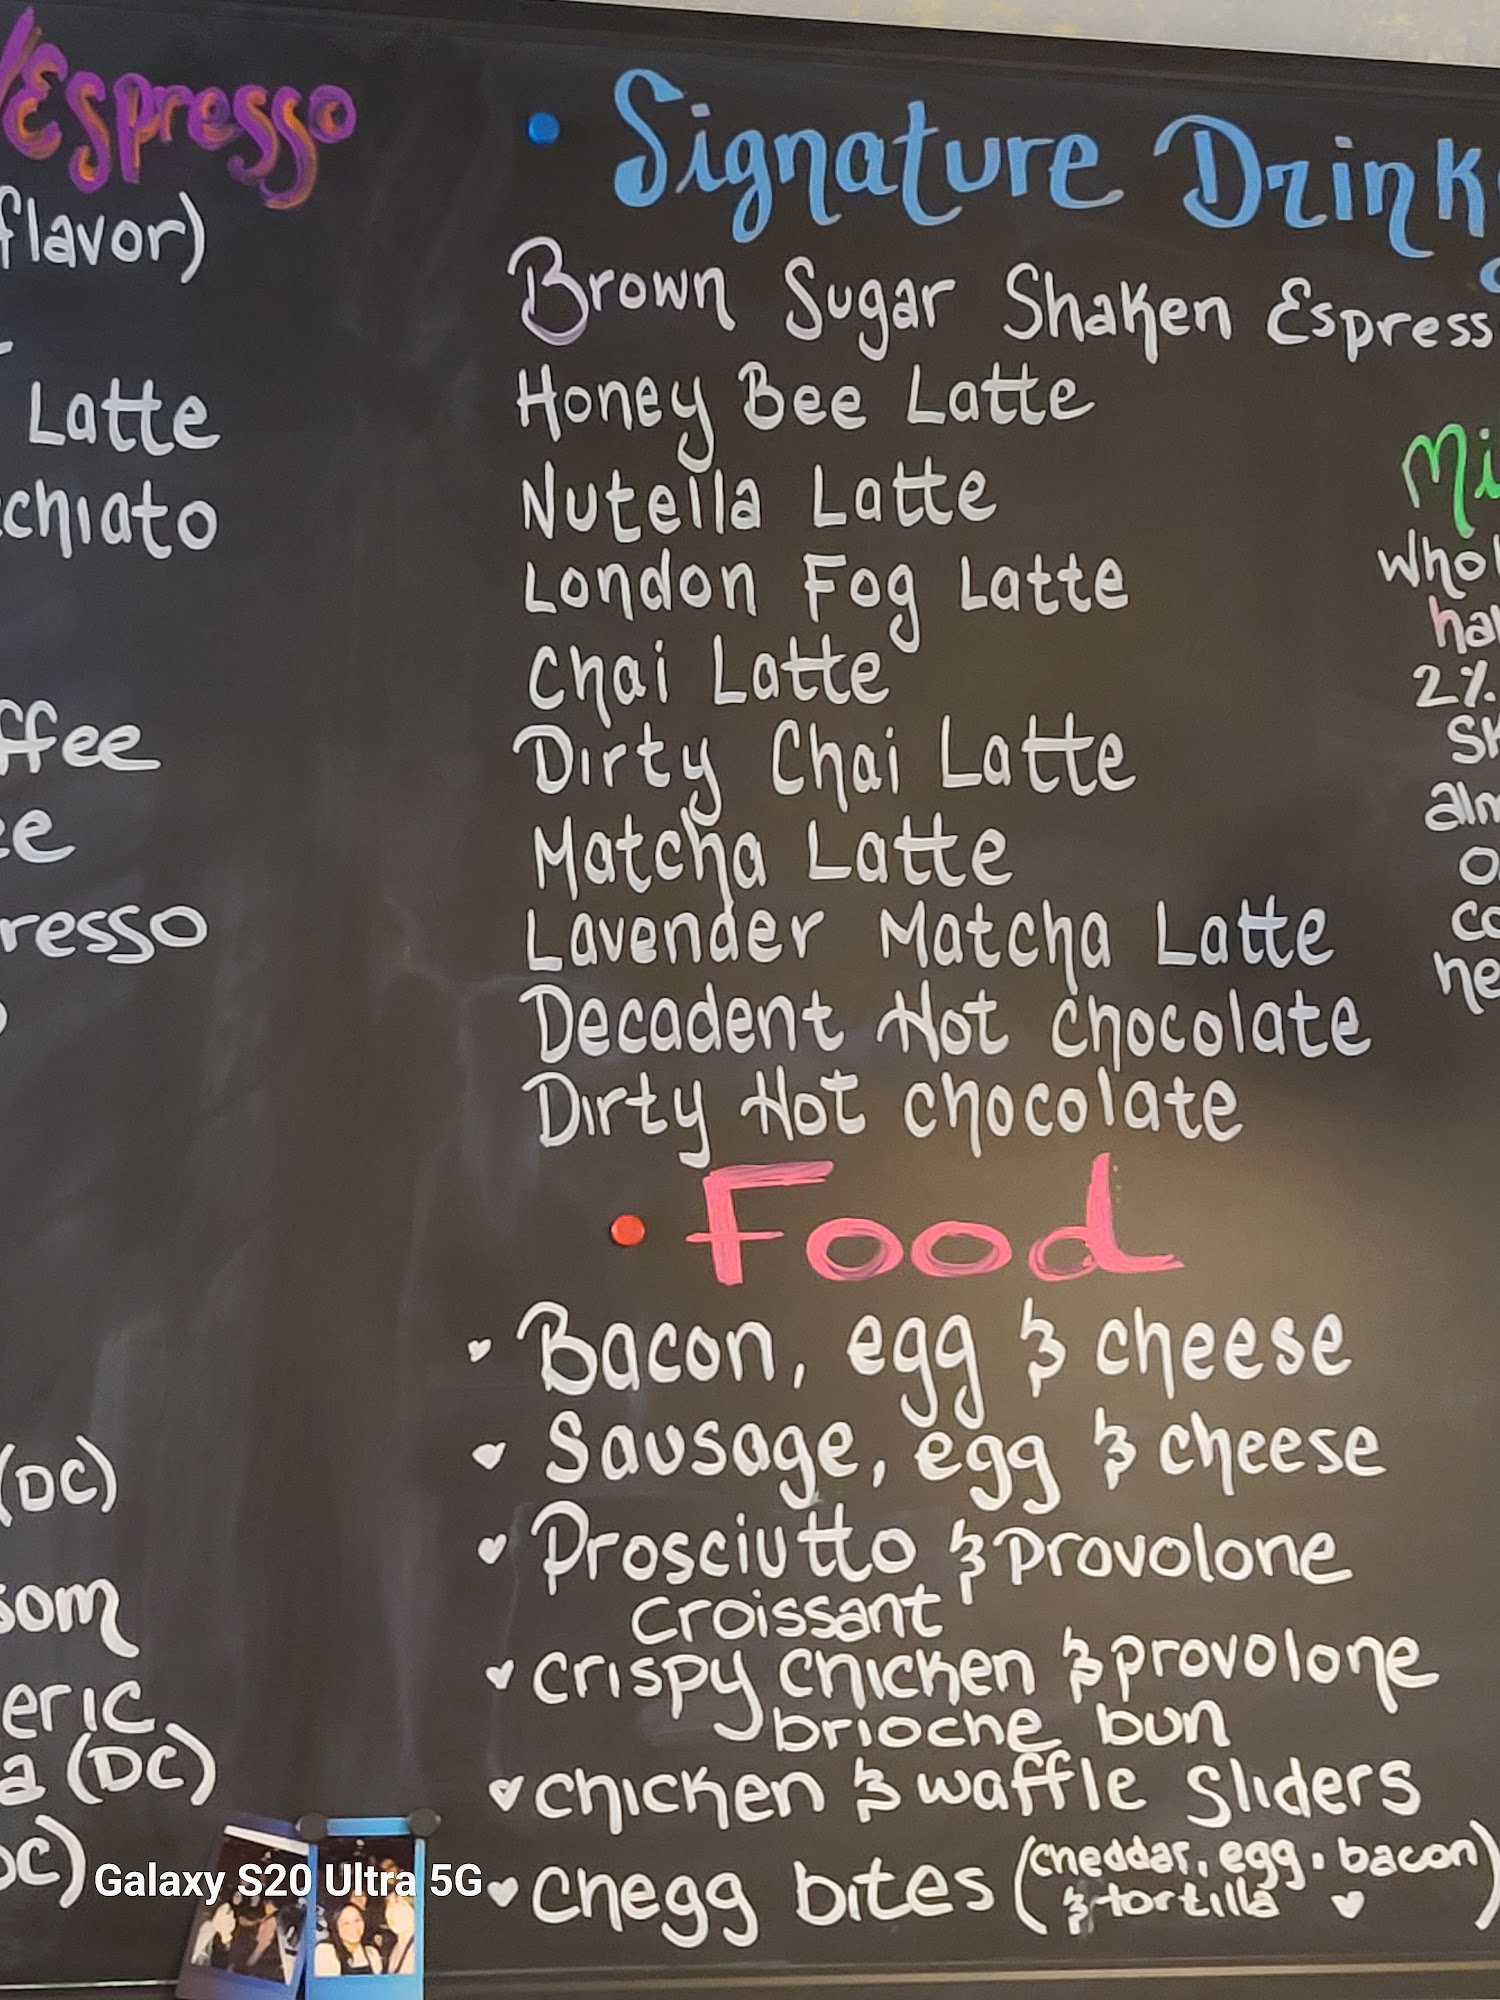 Espresso
flavor)
Latte
cchiato
ffee
ee
resso
(DC)
som
eric
a (DC)
DC)
Signature Drink
Brown Sugar Shaken Espress
Honey Bee Latte
Nutella Latte
London Fog Latte
Chai Latte
Dirty Chai Latte
Matcha Latte
Lavender Matcha Latte
Decadent Hot chocolate
Dirty Hot chocolate
Food
Bacon, egg & cheese
Sausage, egg & cheese
Prosciutto & Provolone
croissant
crispy chicken & provolone
brioche bun
chicken & waffle sliders
chegg bites (cheddar, egg, bacon)
& tortilla
Mi
whol
ha
2%
Sk
alm
o
co
he
Galaxy S20 Ultra 5G